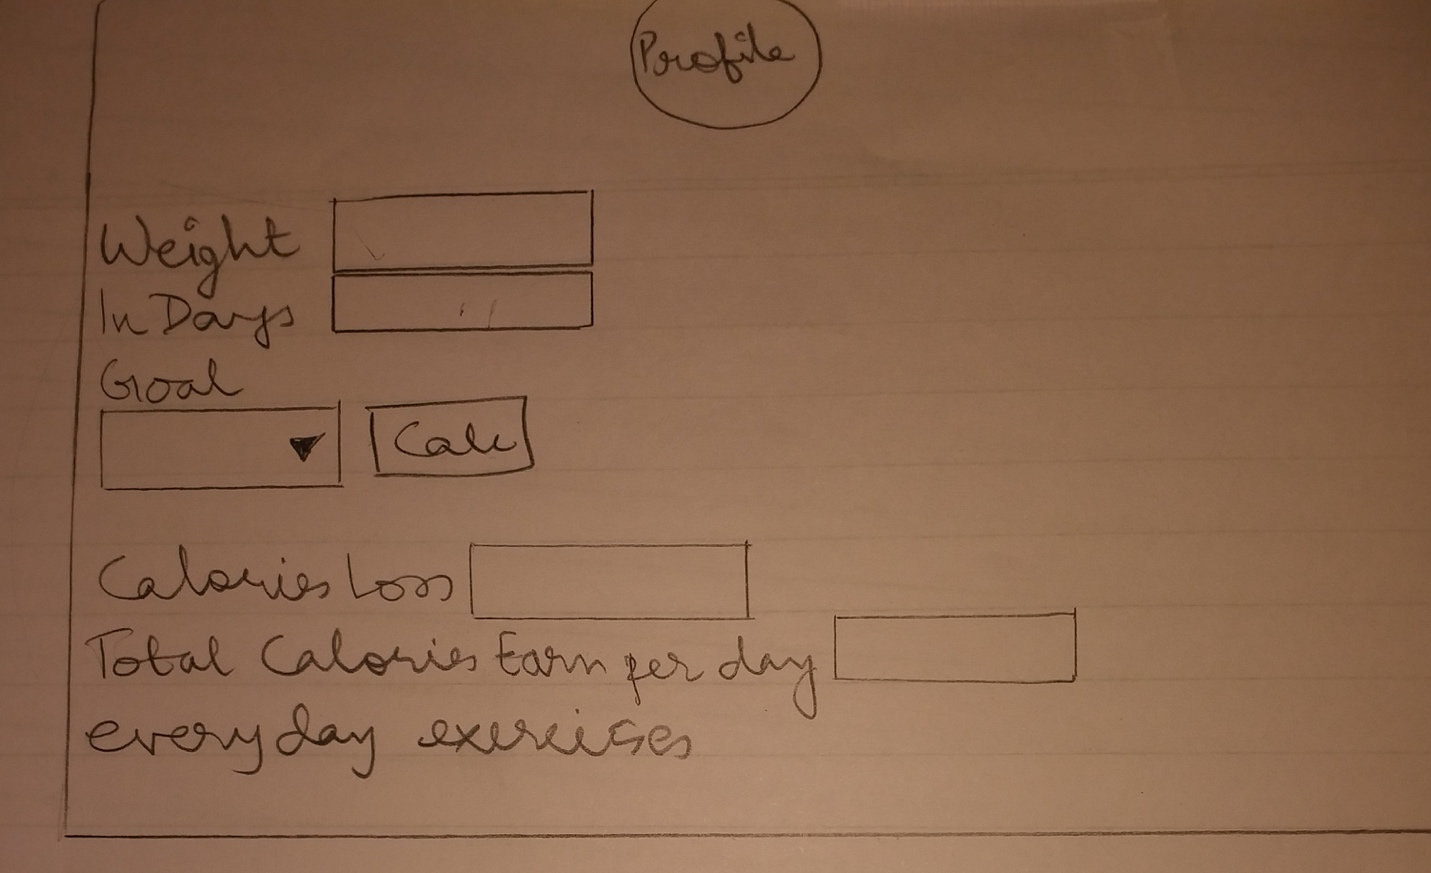 Profile
Weight
In Days
Goal
Calc
Calories Loss
Total Calories Earn per day
everyday exercises